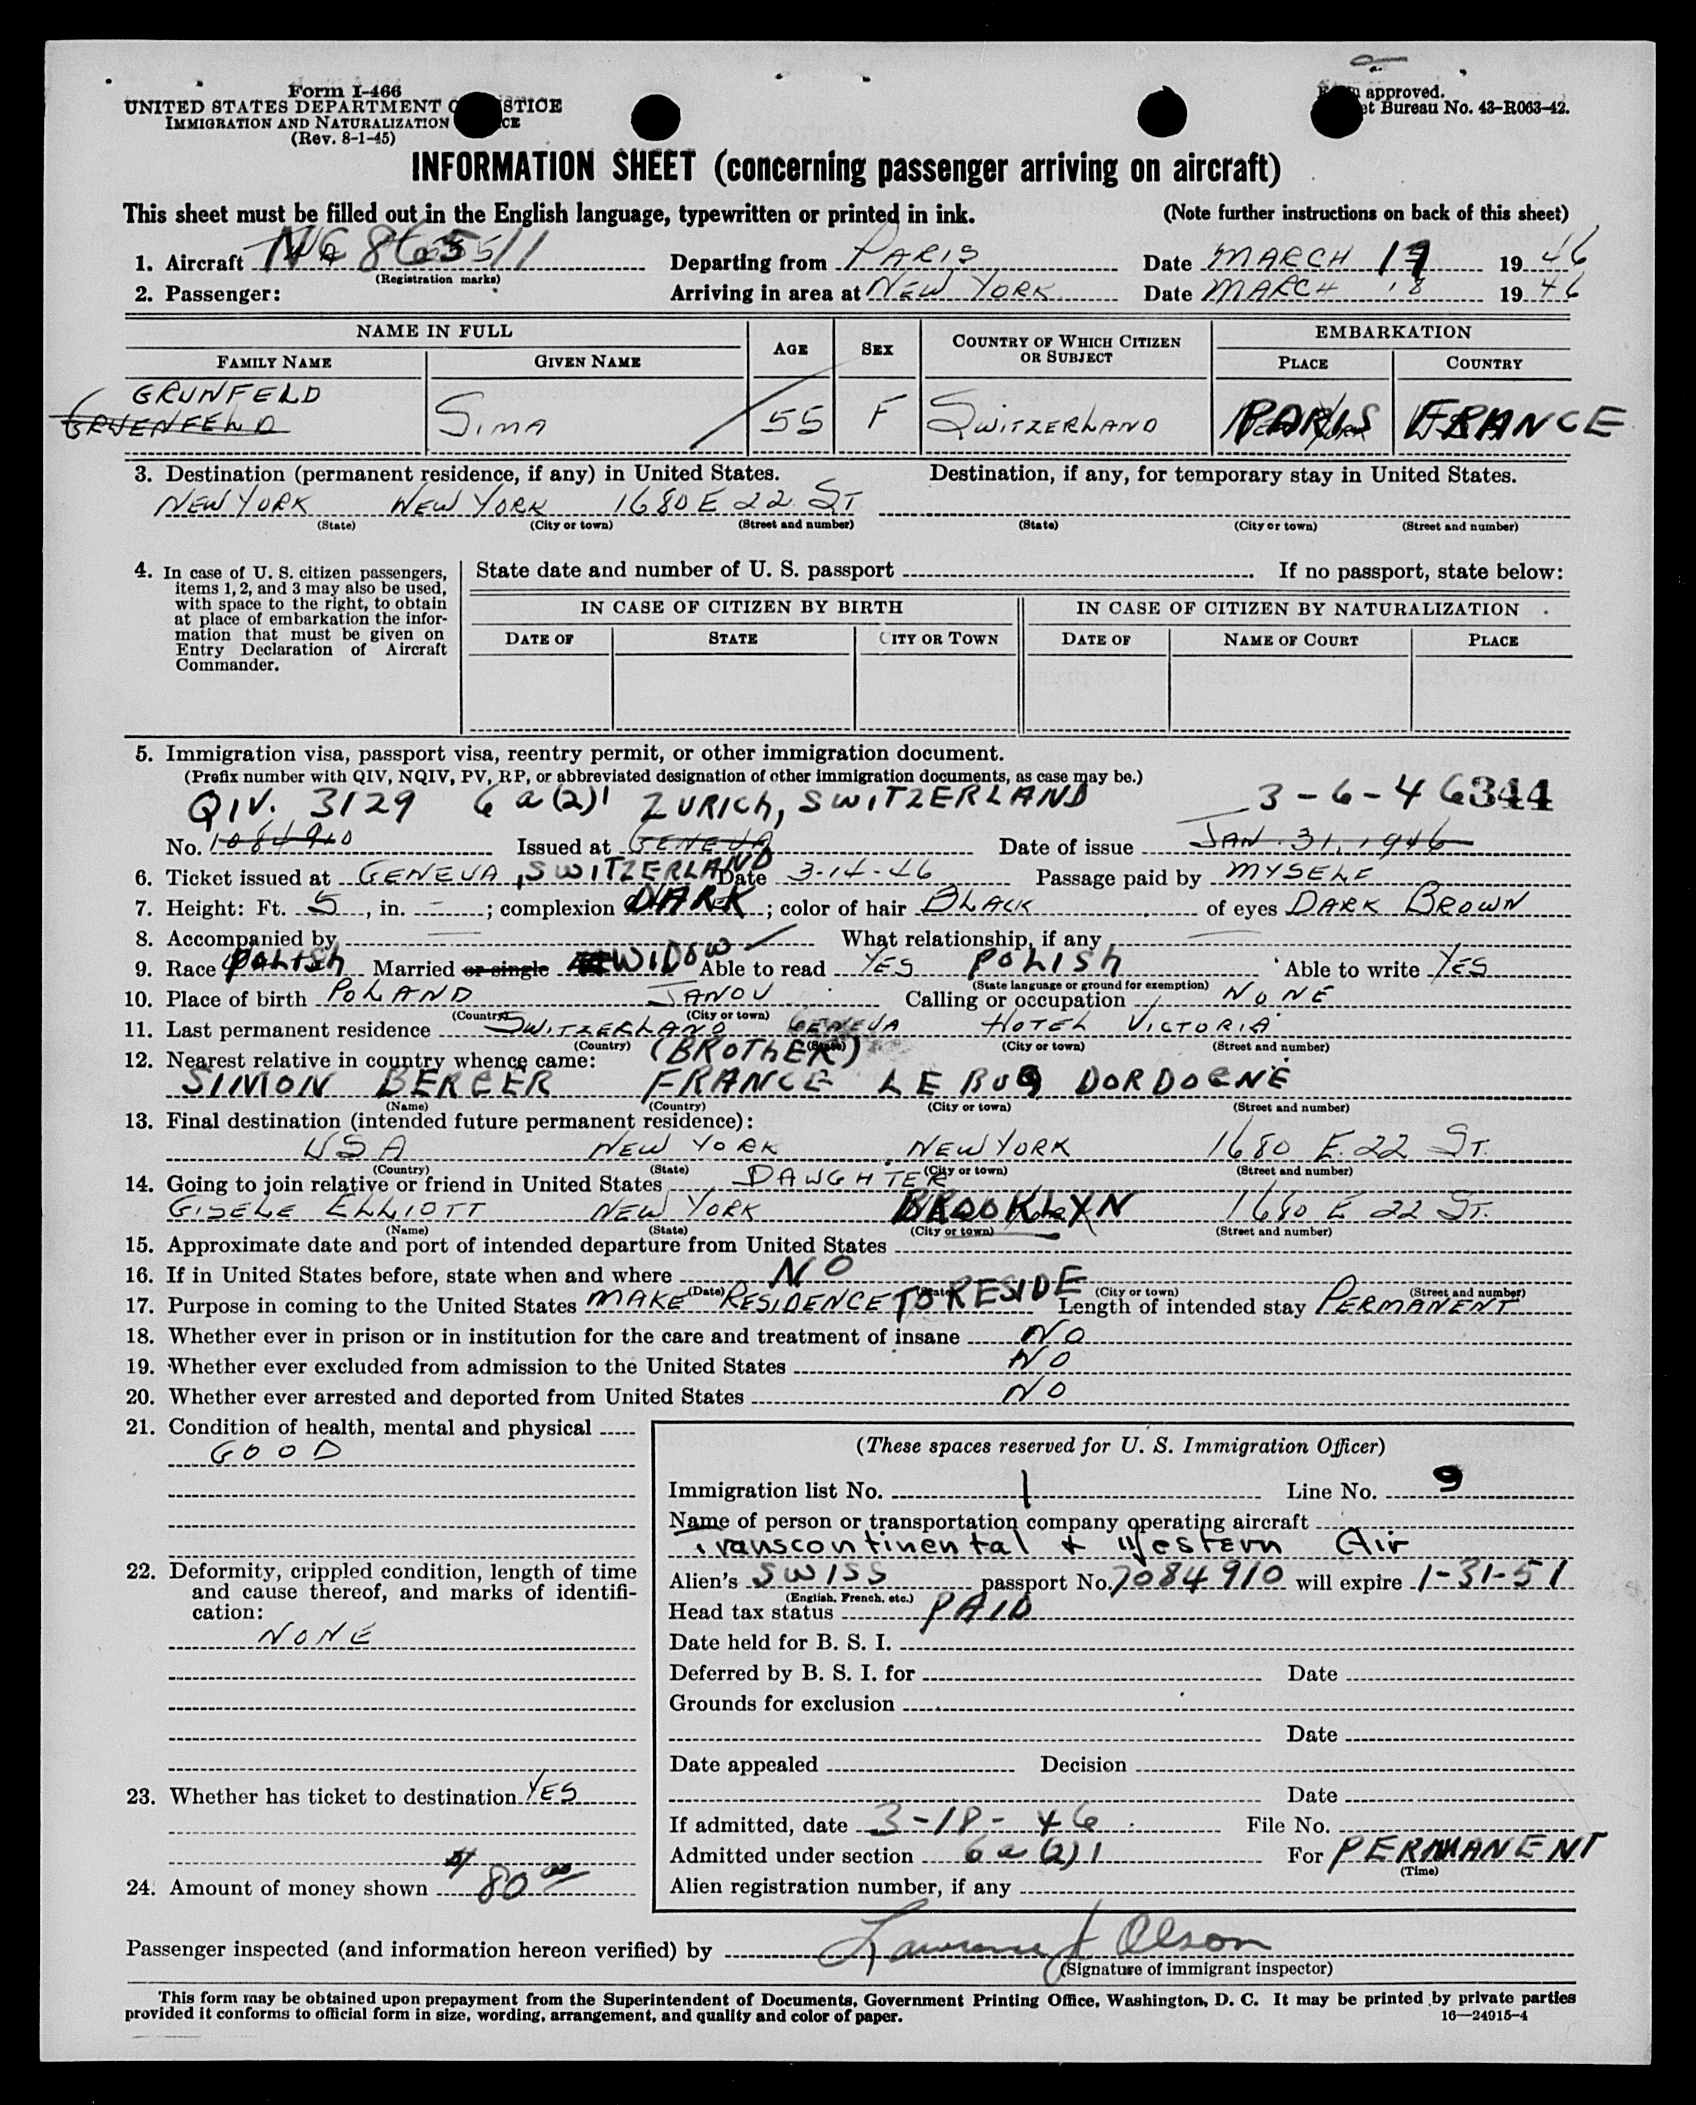 Form I-466
UNITED STATES DEPARTMENT STICE
IMMIGRATION AND NATURALIZATION
(Rev. 8-1-45)
approved.
Bureau No. 43-R063-42.
INFORMATION SHEET (concerning passenger arriving on aircraft)
This sheet must be filled out in the English language, typewritten or printed in ink. (Note further instructions on back of this sheet)
1. Aircraft NC 86511 Departing from PARIS Date MARCH 17 1946
(Registration marks)
2. Passenger: Arriving in area at NEW YORK Date MARCH 18 1946
NAME IN FULL AGE SEX COUNTRY OF WHICH CITIZEN OR SUBJECT EMBARKATION
FAMILY NAME GIVEN NAME PLACE COUNTRY
GRUNFELD
GRUENFELD SIMA 55 F SWITZERLAND PARIS FRANCE
3. Destination (permanent residence, if any) in United States. Destination, if any, for temporary stay in United States.
NEW YORK NEW YORK 1680 E 22 ST
(State) (City or town) (Street and number) (State) (City or town) (Street and number)
4. In case of U. S. citizen passengers, items 1, 2, and 3 may also be used, with space to the right, to obtain at place of embarkation the information that must be given on Entry Declaration of Aircraft Commander.
State date and number of U. S. passport If no passport, state below:
IN CASE OF CITIZEN BY BIRTH IN CASE OF CITIZEN BY NATURALIZATION
DATE OF STATE CITY OR TOWN DATE OF NAME OF COURT PLACE
5. Immigration visa, passport visa, reentry permit, or other immigration document.
(Prefix number with QIV, NQIV, PV, RP, or abbreviated designation of other immigration documents, as case may be.)
QIV. 3129 6a(2)1 ZURICH, SWITZERLAND 3-6-46 344
No. 1084910 Issued at GENEVA Date of issue JAN. 31, 1946
6. Ticket issued at GENEVA, SWITZERLAND Date 3-14-46 Passage paid by MYSELF
7. Height: Ft. 5, in. -; complexion DARK; color of hair BLACK of eyes DARK BROWN
8. Accompanied by What relationship, if any
9. Race POLISH Married or single WIDOW Able to read YES POLISH Able to write YES
(State language or ground for exemption)
10. Place of birth POLAND JANOV Calling or occupation NONE
(Country) (City or town)
11. Last permanent residence SWITZERLAND GENEVA HOTEL VICTORIA
(Country) (State) (City or town) (Street and number)
12. Nearest relative in country whence came: (BROTHER)
SIMON BERGER FRANCE LE BUG DORDOGNE
(Name) (Country) (City or town) (Street and number)
13. Final destination (intended future permanent residence):
USA NEW YORK NEW YORK 1680 E. 22 ST.
(Country) (State) (City or town) (Street and number)
14. Going to join relative or friend in United States DAUGHTER
GISELE ELLIOTT NEW YORK BROOKLYN 1680 E 22 ST.
(Name) (State) (City or town) (Street and number)
15. Approximate date and port of intended departure from United States
16. If in United States before, state when and where NO
(Date) (State) (City or town) (Street and number)
17. Purpose in coming to the United States MAKE RESIDENCE TO RESIDE Length of intended stay PERMANENT
18. Whether ever in prison or in institution for the care and treatment of insane NO
19. Whether ever excluded from admission to the United States NO
20. Whether ever arrested and deported from United States NO
21. Condition of health, mental and physical
GOOD
22. Deformity, crippled condition, length of time and cause thereof, and marks of identification:
NONE
23. Whether has ticket to destination YES
24. Amount of money shown $80.00
(These spaces reserved for U. S. Immigration Officer)
Immigration list No. 1 Line No. 9
Name of person or transportation company operating aircraft
Transcontinental & Western Air
Alien's SWISS passport No. 7084910 will expire 1-31-51
(English, French, etc.)
Head tax status PAID
Date held for B. S. I.
Deferred by B. S. I. for Date
Grounds for exclusion
Date
Date appealed Decision
Date
If admitted, date 3-18-46 File No.
Admitted under section 6a(2)1 For PERMANENT
(Time)
Alien registration number, if any
Passenger inspected (and information hereon verified) by Lawrence J Olson
(Signature of immigrant inspector)
This form may be obtained upon prepayment from the Superintendent of Documents, Government Printing Office, Washington, D. C. It may be printed by private parties
provided it conforms to official form in size, wording, arrangement, and quality and color of paper. 16—24915-4